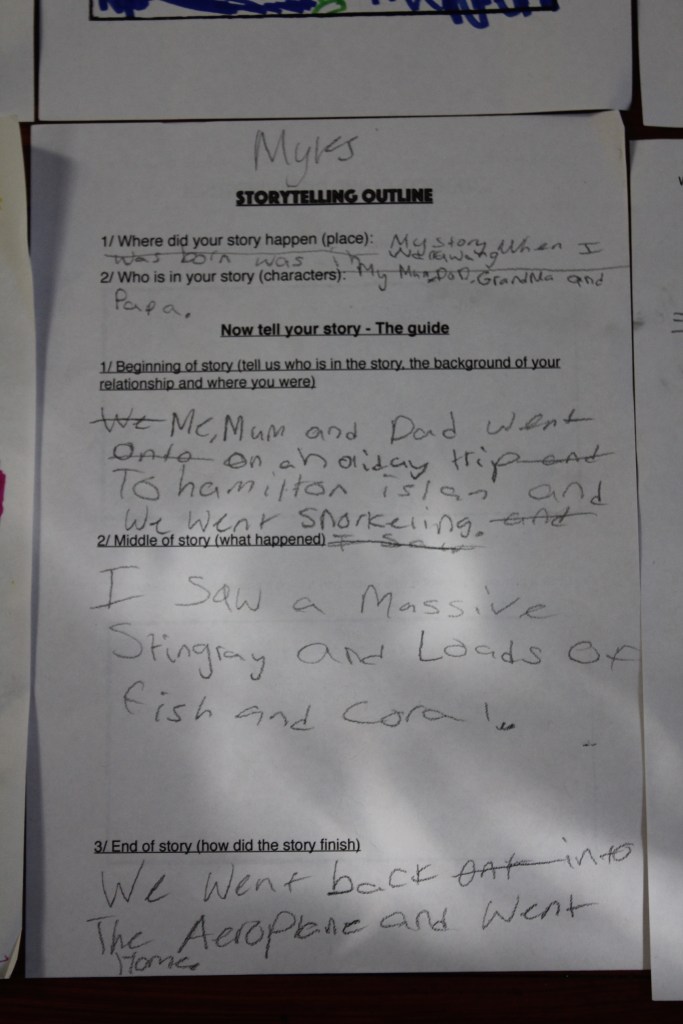 Myks
STORYTELLING OUTLINE
1/ Where did your story happen (place): My story When I
was born was in
2/ Who is in your story (characters): My Mum, DaD, GranMa and
Papa.
Now tell your story - The guide
1/ Beginning of story (tell us who is in the story, the background of your
relationship and where you were)
We Me, Mum and Dad went
onto on a holiday trip and
To hamilton islan and
We Went snorkeling. and
2/ Middle of story (what happened) I Saw
I Saw a Massive
Stingray and Loads of
fish and coral.
3/ End of story (how did the story finish)
We Went back ont into
The Aeroplane and Went
Home.